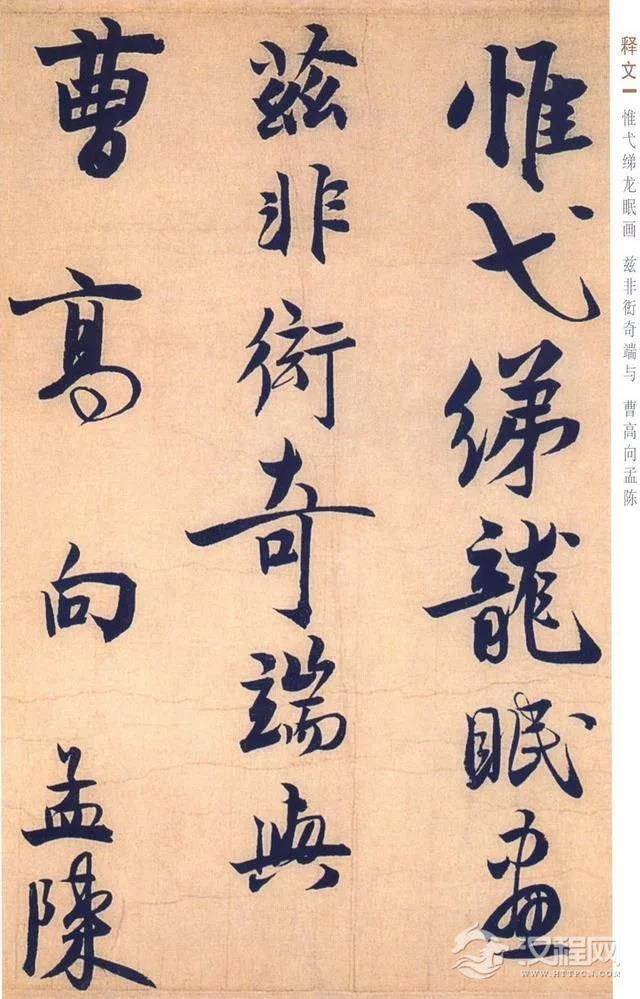 惟弋绨龍眠畫
茲非衒奇端與
曹高向孟陳
释文 惟弋绨龙眠画 兹非衒奇端与 曹高向孟陈
汉程网
HTTPCN.COM